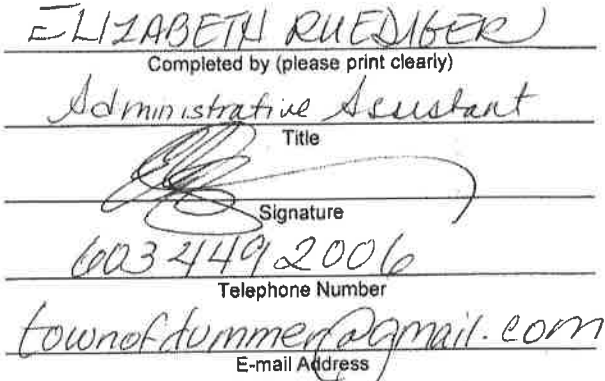 ELIZABETH RUEDIGER
Completed by (please print clearly)
Administrative Assistant
Title
Signature
603 449 2006
Telephone Number
townofdummer@gmail.com
E-mail Address